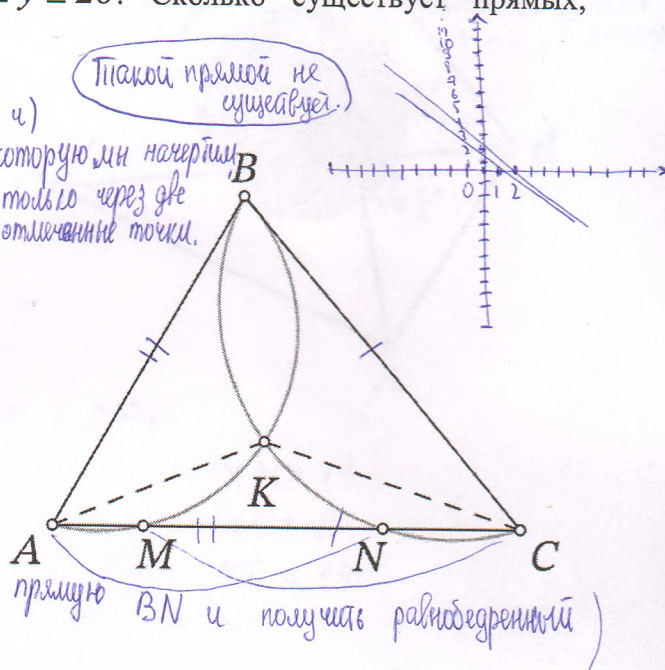 у ≤ 20. Сколько существует прямых,
Такой прямой не
существует.
ч)
которую мы начертим,
только через две
отмеченные точки.
0 1 2
B
K
A M N C
прямую BN и получить равнобедренный